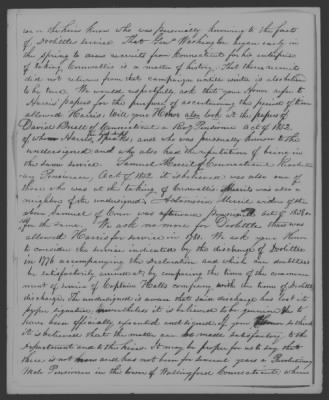 who was personally knowing to the facts
of Doolittles service. That Genl Washington began early in
the Spring to draw recruits from Connecticut for his enterprise
of taking Cornwallis is a matter of history. That these recruits
did not return from that campaign until winter is also believed
to be true. We would respectfully ask that your Honor refer to
Harris' papers for the purpose of ascertaining the period of time
allowed Harris. Will your Honor also look at the papers of
David Buell of Connecticut a Rev. Pensioner Act of 1832.
of and who was personally known to the
undersigned and who also had the reputation of being in
this same service. Samuel Merril of Connecticut Revolution
ary Pensioner, Act of 1832 it is believed was also one of
those who was at the taking of Cornwallis was also a
neighbor of the undersigned. Merril widow of the
Samuel of Conn was afterwards Act of 1838
for the same. We ask no more for Doolittle than was
allowed Harris for service in 1781. We ask your Honor
to consider the service indicated by the discharge of Doolittle
in 1776 accompanying the Declaration and which can doubtless
be satisfactorily arrived at by comparing the time of the commence
ment of service of Captain Halls company with the time of Doolittle
discharge. The undersigned is aware that said discharge has lost its
proper signature nevertheless it is believed to be genuine to
have been officially executed and signed
it is believed that the matter can be made satisfactory to the
department and to the heirs. It may be proper for us to say that
there is not and has not been for several years a Revolutionary
Male Pensioner in the town of Wallingford Connecticut, where